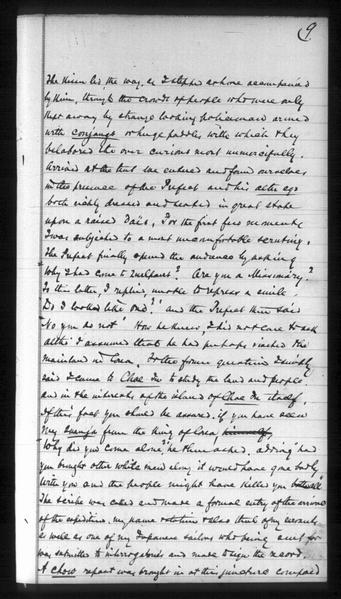 9
The Kisen led the way, as I stepped ashore accompanied
by Kisen, through the crowds of people who were only
kept away by strange looking policemen armed
with conjangs or huge paddles, with which they
belabored the over curious most unmercifully.
Arrived at the tent we entered and found ourselves
in the presence of the Prefect and his alter ego
both richly dressed and seated in great state
upon a raised Dais. For the first few moments
I was subjected to a most uncomfortable scrutiny.
The Prefect finally opened the audience by asking
Why I had come to Quelpart? Are you a Missionary?
To this latter, I replied, unable to repress a smile
Do I look like one?' and the Prefect then said
No you do not. How he knew, I did not care to ask
altho' I assumed that he had perhaps visited the
mainland in Corea. To the former question I simply
said I came to Choe Ju to study the land and people
and in the interests of the island of Choe Ju itself.
Of this fact you should be assured if you have seen
my from the King of Corea, himself,
Why did you come alone, he then asked, adding "had
you brought other white men along it would have gone badly
with you and the people might have killed you but
The scribe was called and made a formal entry of the arrival
of the expedition. my name & also that of my servants
as well as one of my Japanese sailors who being sent for
was submitted to interrogations and made to sign the record.
A chow repast was brought in at this juncture composed